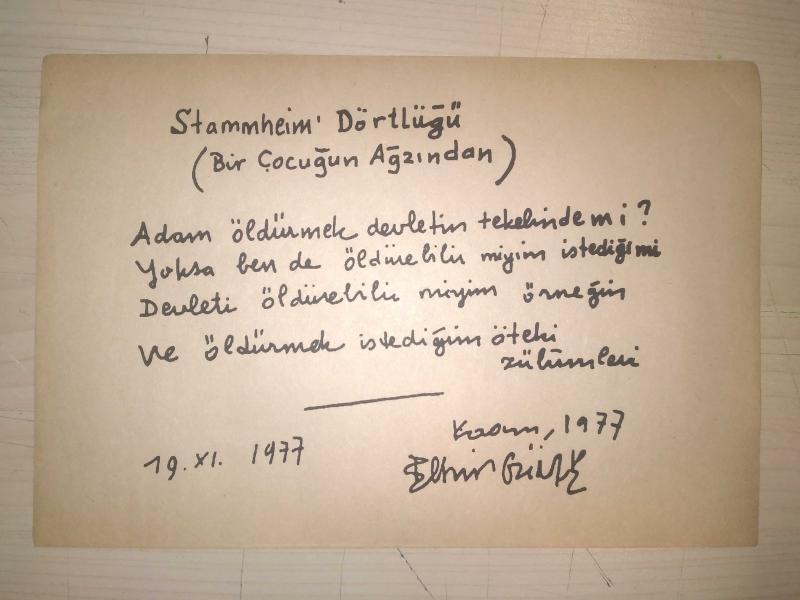 Stammheim' Dörtlüğü
(Bir Çocuğun Ağzından)
Adam öldürmek devletin tekelinde mi?
Yoksa ben de öldürebilir miyim istediğimi
Devleti öldürebilir miyim örneğin
Ve öldürmek istediğim öteki
zülümleri
Kasım, 1977
19. XI. 1977